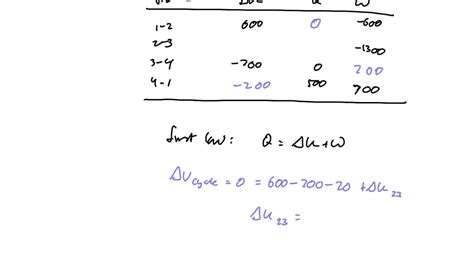 1-2 600 0 -600
2-3 -1300
3-4 -700 0 700
4-1 -200 500 700
first law: Q = Δu + W
ΔU cycle = 0 = 600 - 700 - 20 + Δu 23
Δu 23 =